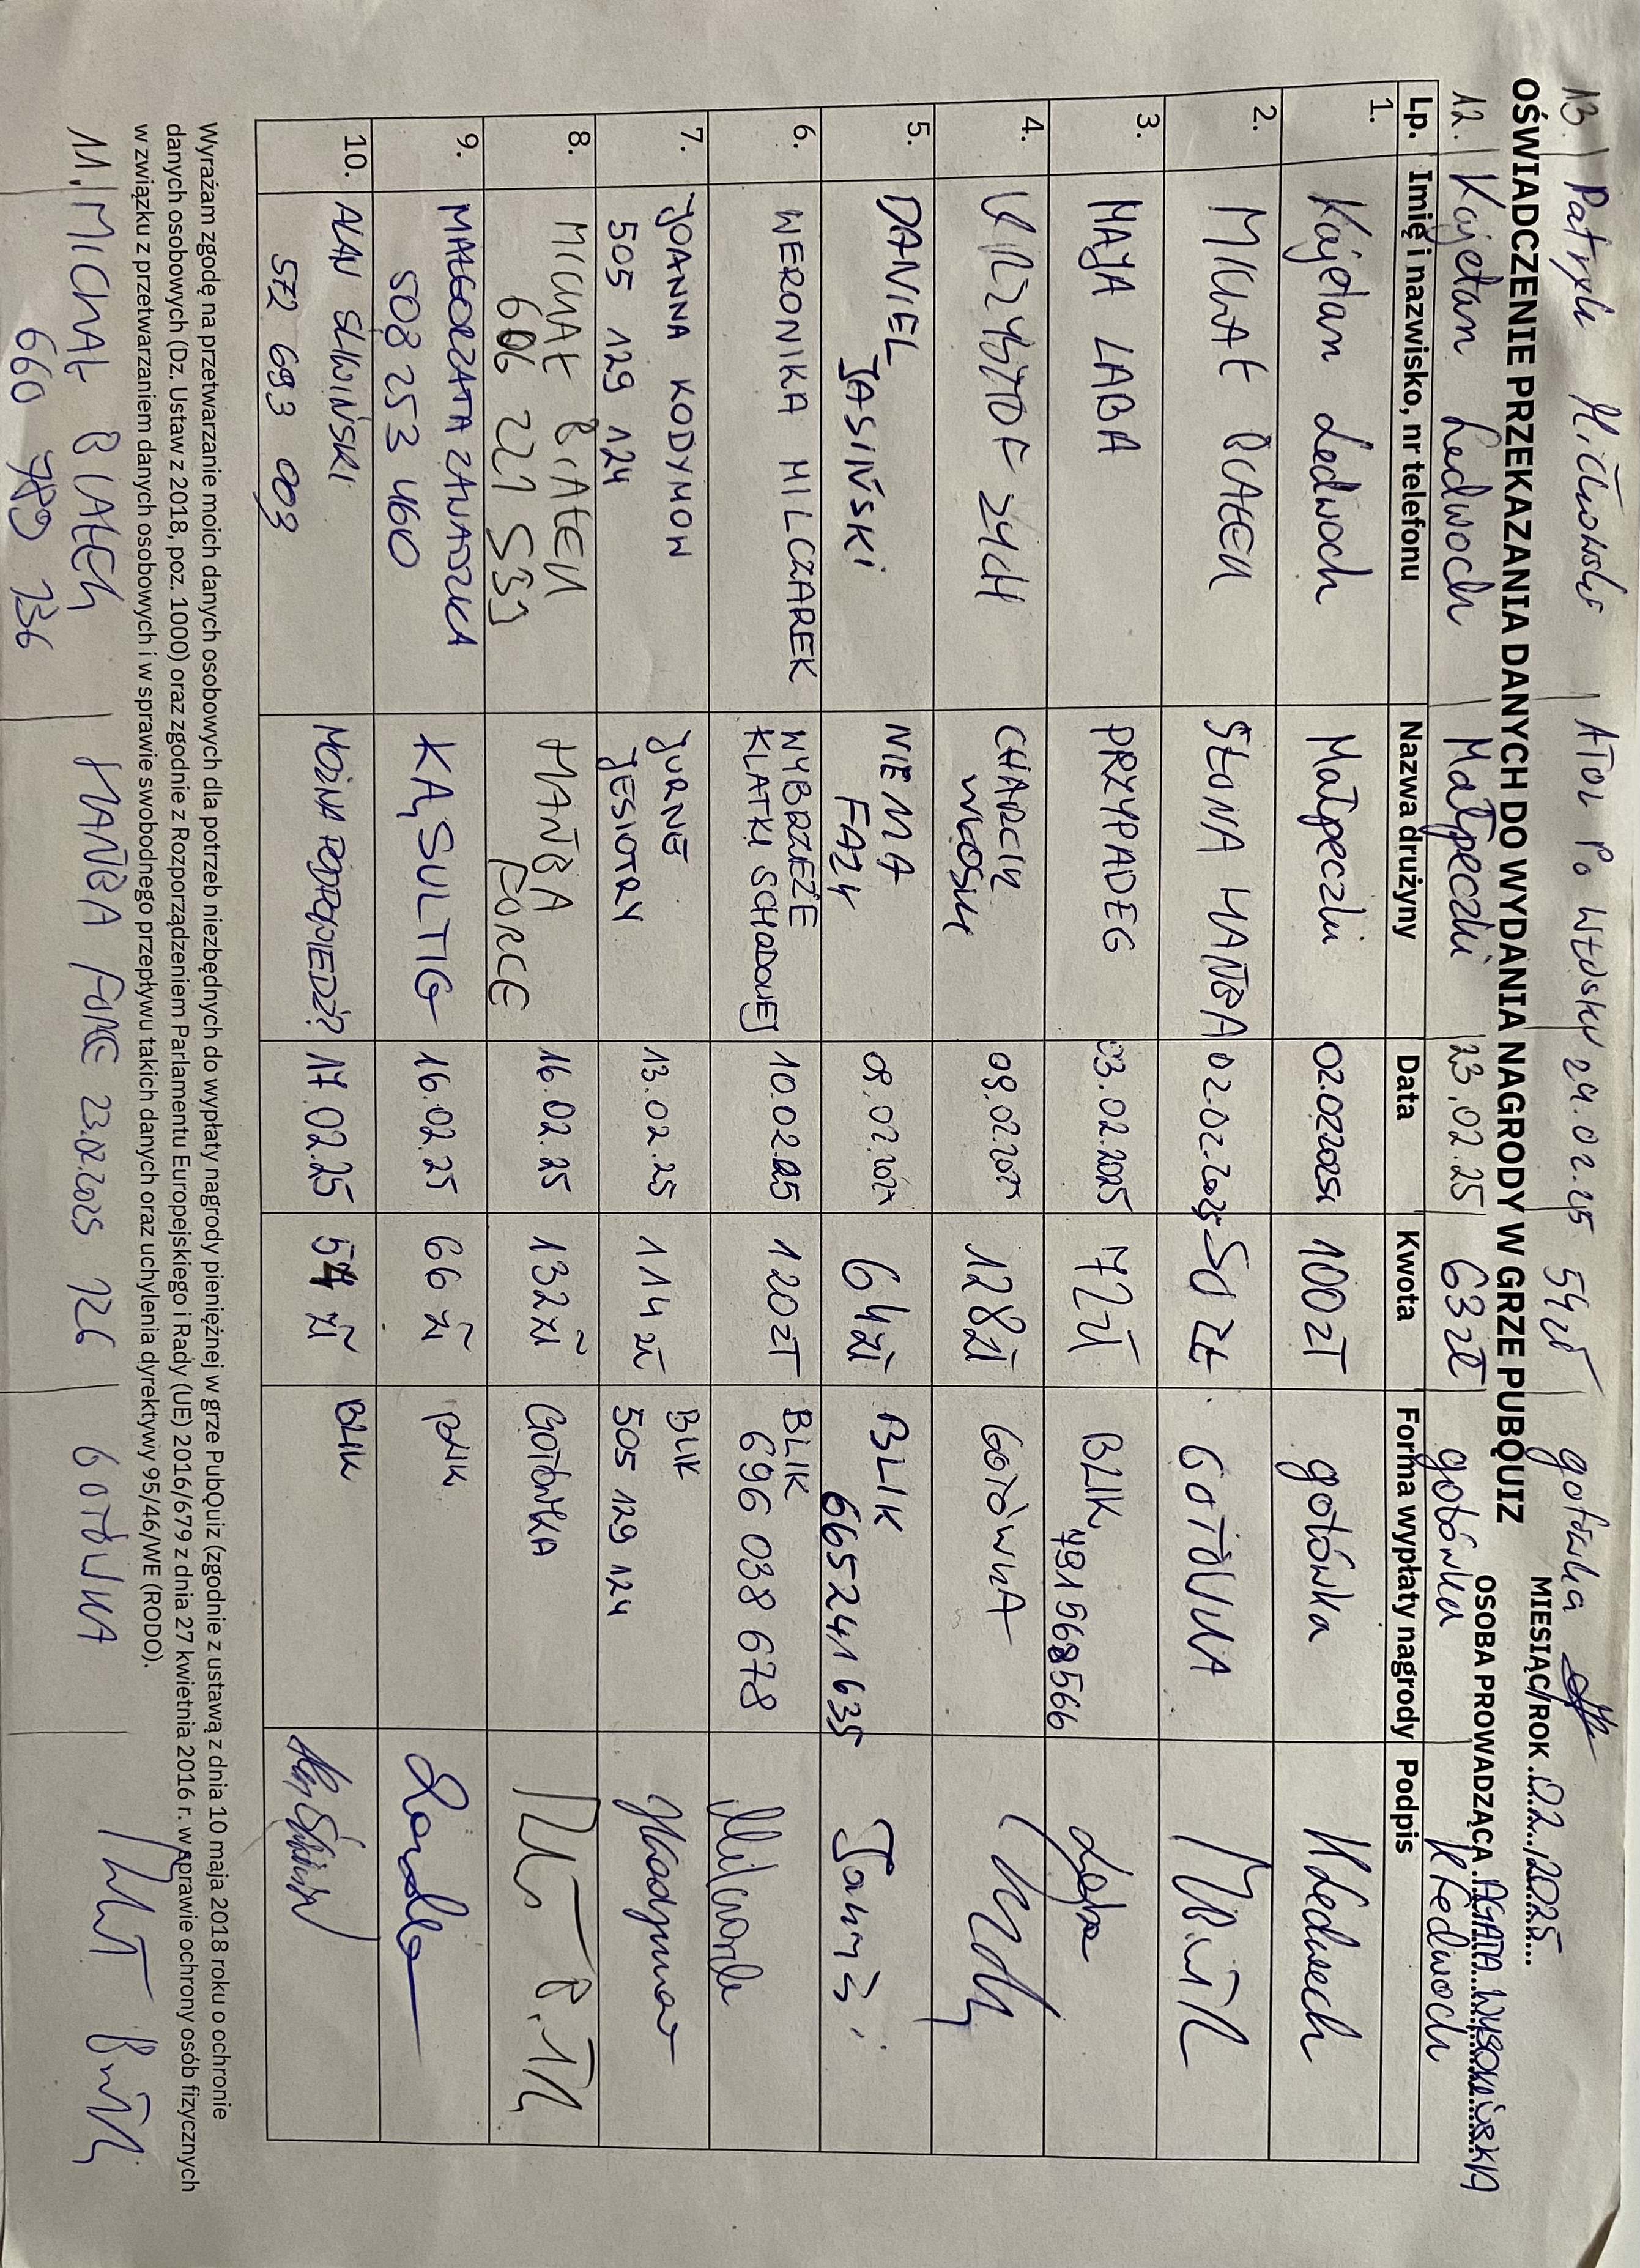 13. Patryk Ator Po Włosku 24.02.25 54 zł gotówka
OŚWIADCZENIE PRZEKAZANIA DANYCH DO WYDANIA NAGRODY W GRZE PUBQUIZ
MIESIĄC/ROK 02.2025
OSOBA PROWADZĄCA AGATA
12. Kajetan Ledwoch Małpeczki 23.02.25 63 zł gotówka KLedwoch
Lp. Imię i nazwisko, nr telefonu Nazwa drużyny Data Kwota Forma wypłaty nagrody Podpis
1. Kajetan Ledwoch Małpeczki 02.02.2025 100 zł gotówka KLedwoch
2. MICHAŁ BIAŁEK SŁONA HAŃBA 02.02.2025 50 ZŁ GOTÓWKA
3. MAJA LABA PRZYPADEG 03.02.2025 72 zł BLIK 791568566 Laba
4. KRZYSZTOF ZYCH CHARCIK WŁOSKI 09.02.2025 128 zł GOTÓWKA
5. DANIEL JASIŃSKI NIE MA FAZY 09.02.2025 64 zł BLIK 665241635
6. WERONIKA MILCZAREK WYBRZEŻE KLATKI SCHODOWEJ 10.02.2025 120 ZŁ BLIK 696 038 678 Milczarek
7. JOANNA KODYMOW JURNE JESIOTRY 13.02.25 114 zł BLIK 505 129 124
505 129 124
8. MICHAŁ BIAŁEK HAŃBA FORCE 16.02.25 132 zł GOTÓWKA
606 221 533
9. MAŁGORZATA ZAWADZKA KĄSULTIG 16.02.25 66 zł BLIK
508 253 460
10. ALAN ŚLIWIŃSKI MOŻNA PODPOWIEDŹ? 17.02.25 54 zł BLIK
572 693 003
Wyrażam zgodę na przetwarzanie moich danych osobowych dla potrzeb niezbędnych do wypłaty nagrody pieniężnej w grze PubQuiz (zgodnie z ustawą z dnia 10 maja 2018 roku o ochronie
danych osobowych (Dz. Ustaw z 2018, poz. 1000) oraz zgodnie z Rozporządzeniem Parlamentu Europejskiego i Rady (UE) 2016/679 z dnia 27 kwietnia 2016 r. w sprawie ochrony osób fizycznych
w związku z przetwarzaniem danych osobowych i w sprawie swobodnego przepływu takich danych oraz uchylenia dyrektywy 95/46/WE (RODO).
11. MICHAŁ BIAŁEK HAŃBA FORCE 23.02.2025 126 GOTÓWKA
660 789 736